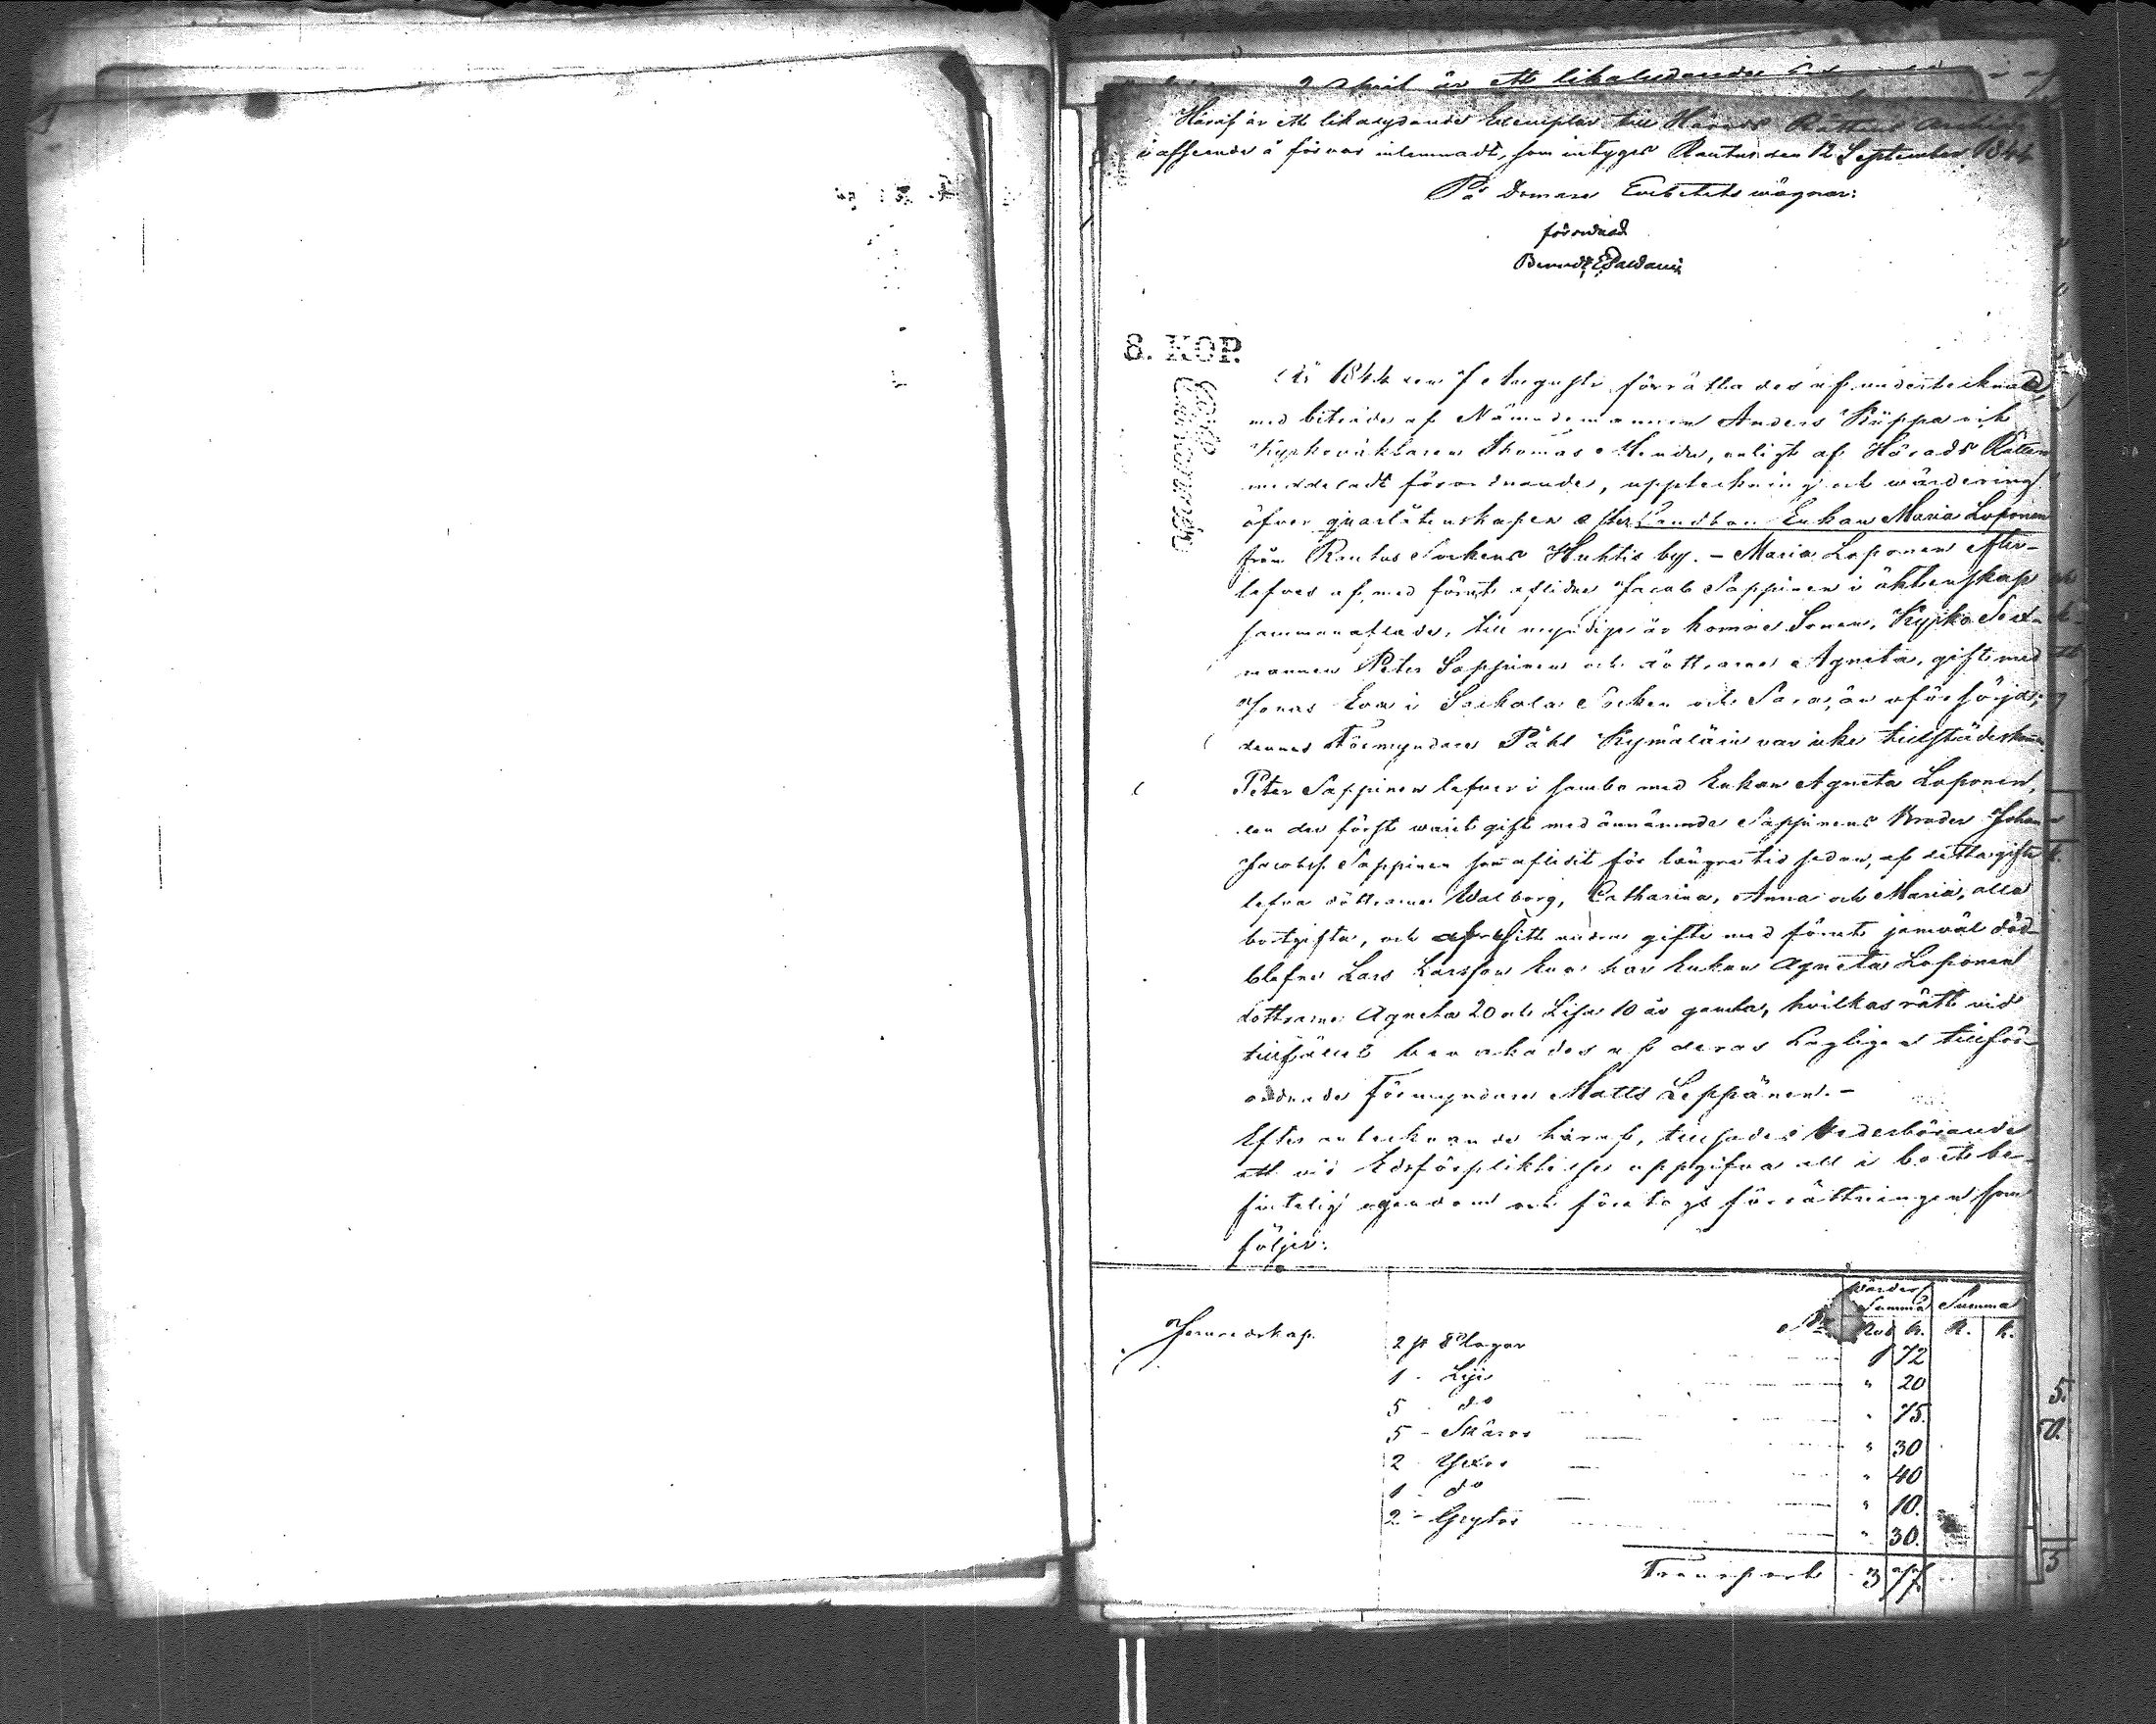 April är ett likaludande
Häraf är ett likalydande Exemplar till Härads Rättens Archiv
i afseende å förvar inlemnadt, som intygas Rautus den 12 September 1844
På Domare Embetets wägnar:
förordnad
8. KOP.
År 1844 den 7 Augusti förrättades af undertecknad,
med biträde af Nämndemannen Anders Küppa och
Kyrkoväktaren Thomas Mendu, enligt af Härads Rätten
meddeladt förordnande, uppteckning och wärdering
öfver qvarlåtenskapen efter Landbon Enkan Maria Loponen
från Rautus Sockens Huhtis by. – Maria Loponen efter-
lefves af, med förut aflidne Jacob Sappinen i äktenskap
sammanaflade, till myndige år komne Sonen, Kyrko Sex-
mannen Peter Sappinen och döttrarne Agneta, gift med
Jonas Ewa i Sackola Socken och Sara, än oförsörjd;
dennes Förmyndare Påhl Kymäläin var icke tillstädeskommen.
Peter Sappinen lefver i sambo med Enkan Agneta Loponen,
den der först warit gift med ännämnde Sappinens Broder Johan
Jacobss. Sappinen som aflidit för längre tid sedan, af detta gifte
lefva döttrarne Walborg, Catharina, Anna och Maria, alla
bortgifta, och af sitt andra gifte med förut jemväl död-
blefne Lars Larsson Ewa har Enkan Agneta Loponen
döttrarne Agneta 20 och Lisa 10 år gamla, hvilkas rätt vid
tillfället bevakades af deras Lagligen tillför-
ordnade Förmyndare Matts Leppänen. –
Efter antecknande häraf, tillsades Vederbörande
att vid Edsförpliktelse uppgifva all i boet be-
fintelig egendom och företogs förrättningen som
följer:
Wärder.
Summa Summa
Rub K. R. K.
Jernredskap. 2 st Plogar 1 72
1 - Lije " 20
5 - do " 75.
5 - Skäror " 30
2 - Yxor " 40
1 - do " 10.
2 - Grytor " 30.
Transport 3 77.
5.
50.